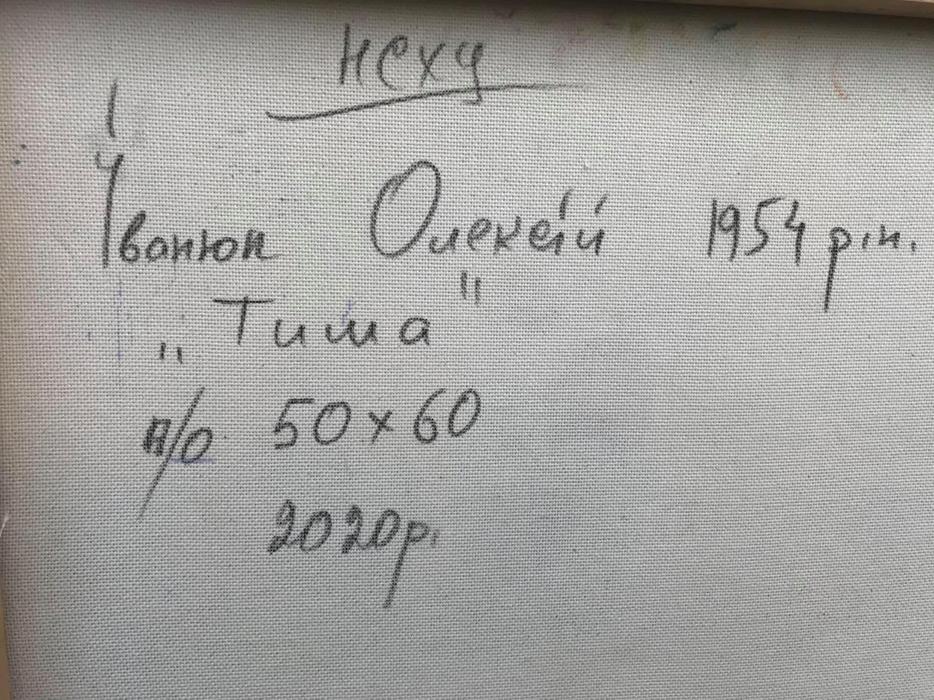 НСХУ
Іванюк Олексій 1954 р.н.
„Тиша"
п/о 50х60
2020р.